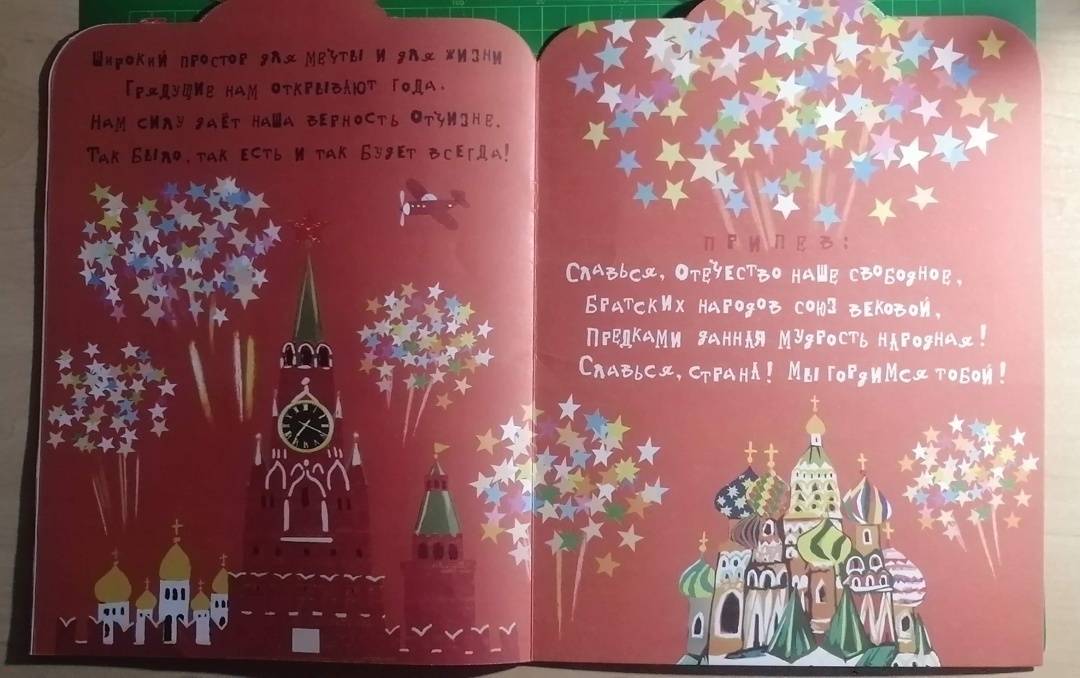 Широкий простор для мечты и для жизни
Грядущие нам открывают года.
Нам силу даёт наша верность Отчизне.
Так было, так есть и так будет всегда!
Припев:
Славься, Отечество наше свободное,
Братских народов союз вековой,
Предками данная мудрость народная!
Славься, страна! Мы гордимся тобой!